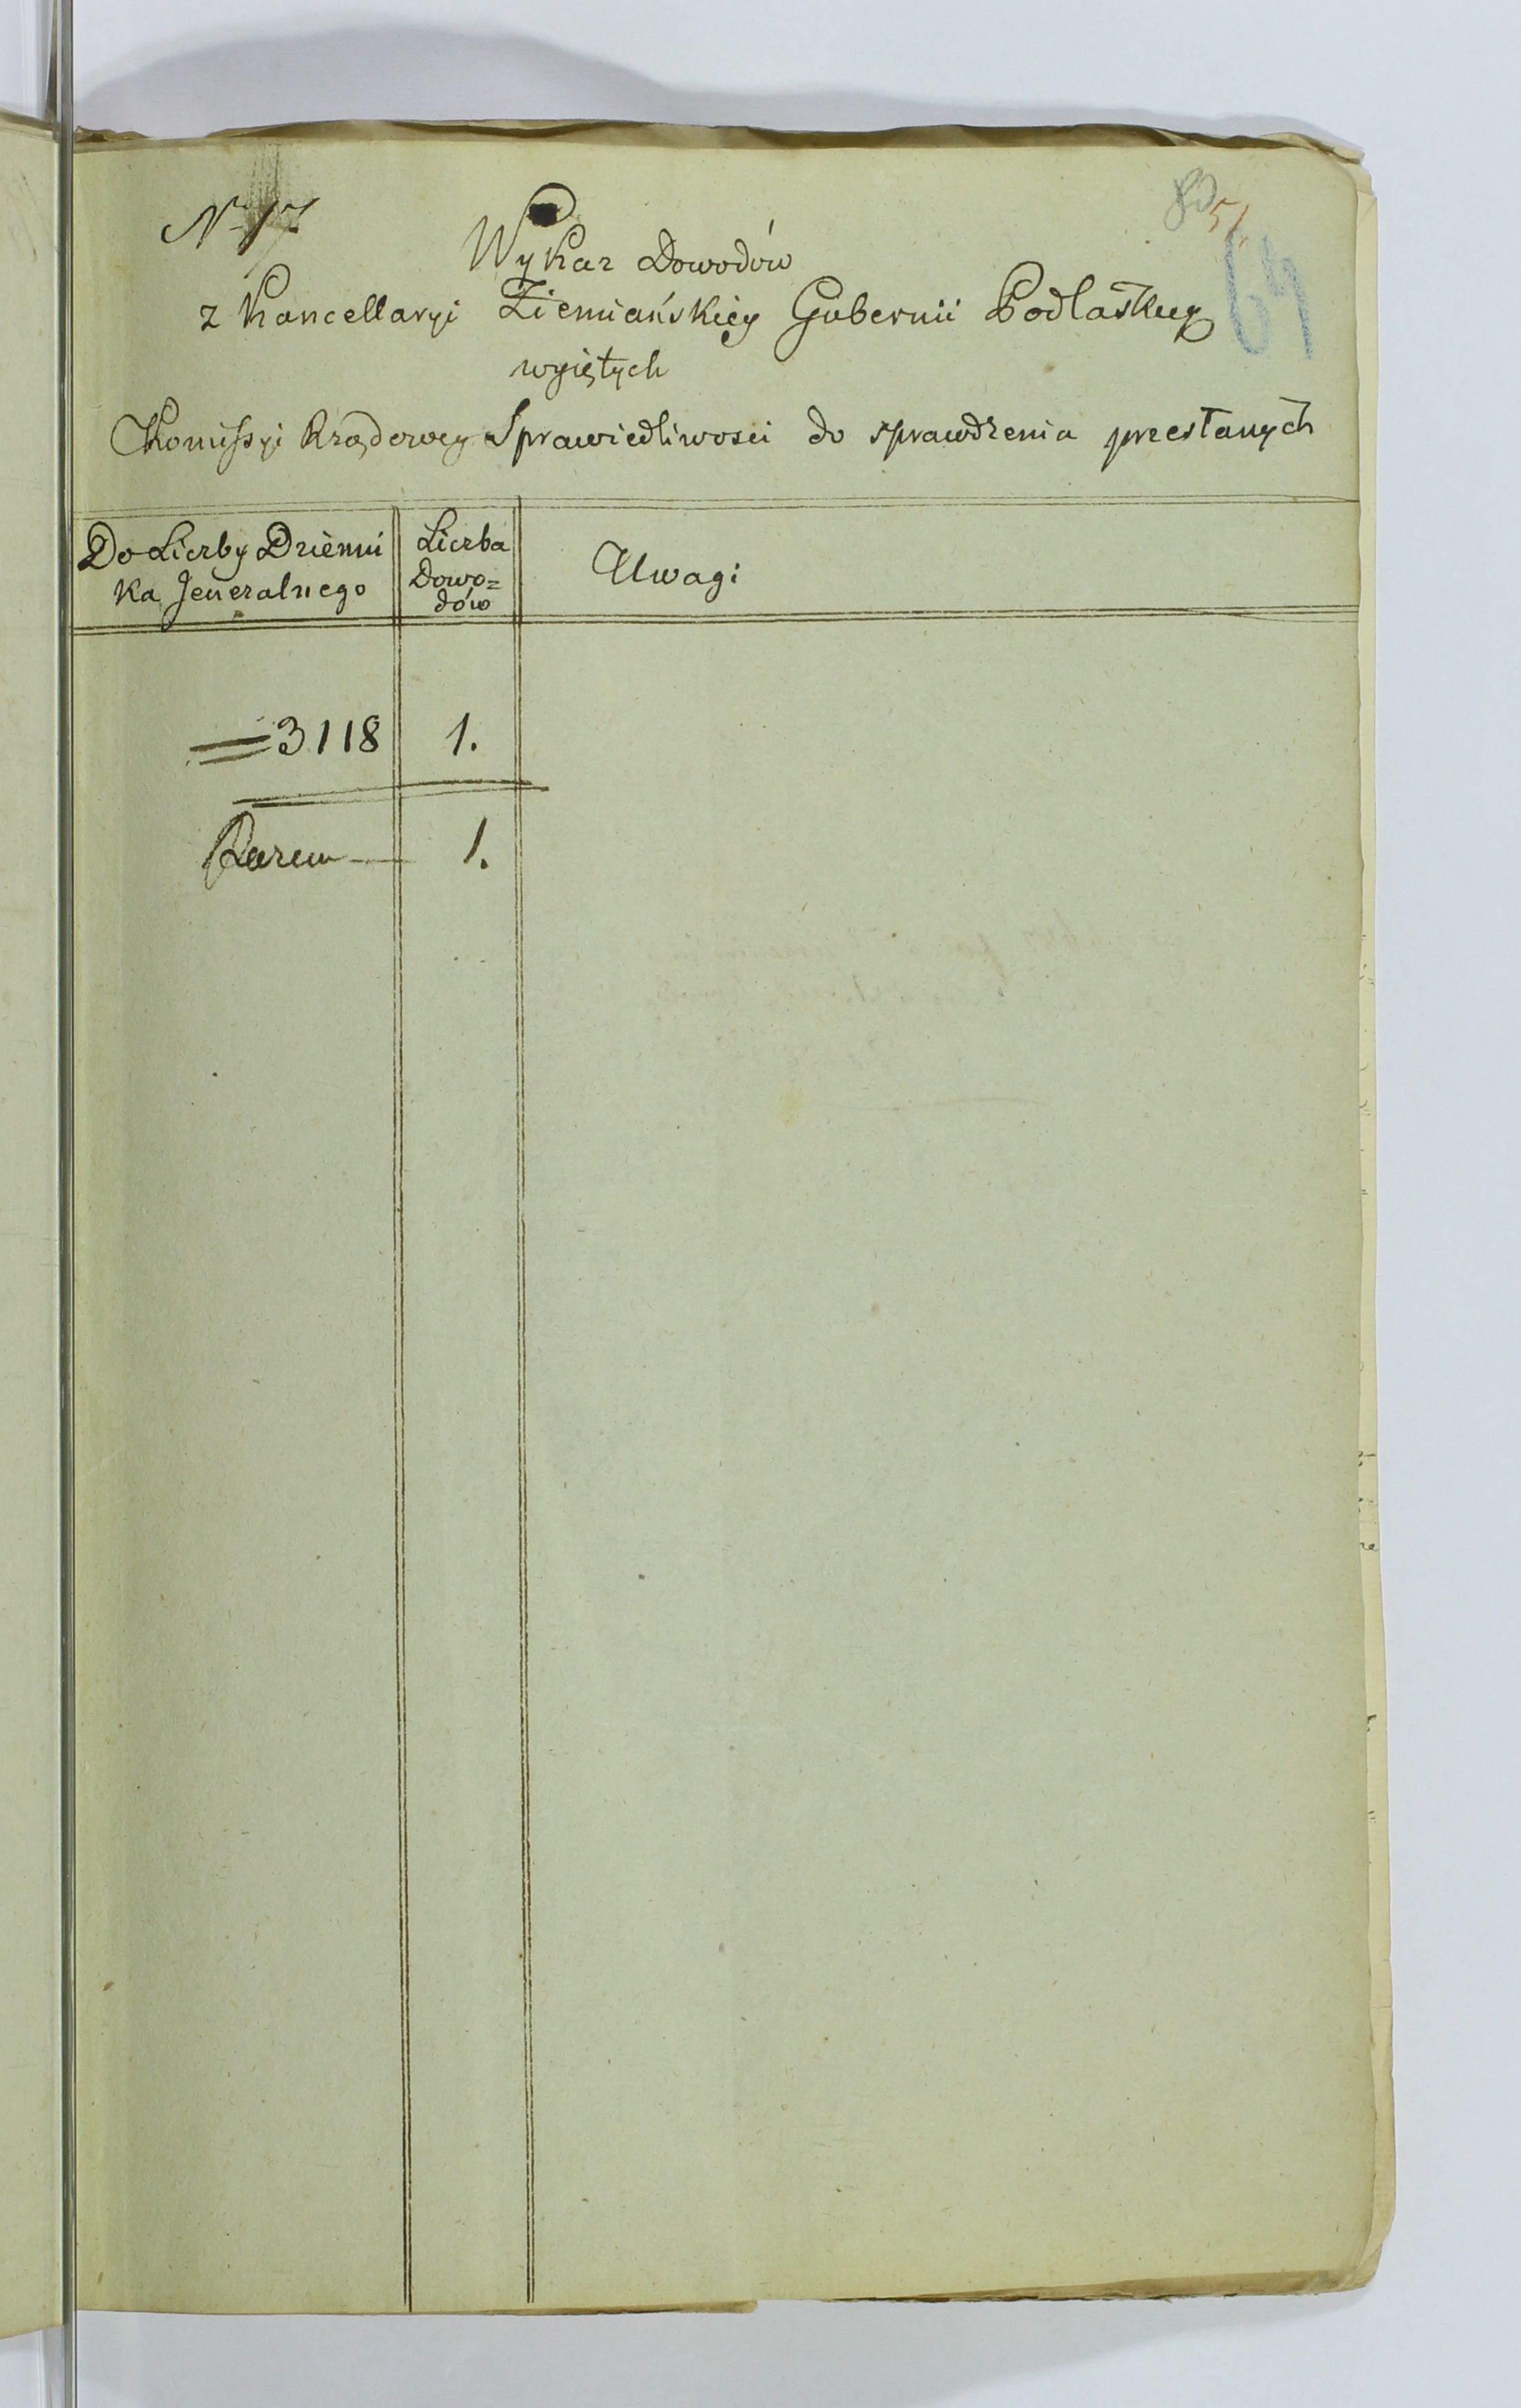 No 17
80
51
69
Wykaz Dowodów
z Kancellaryi Ziemiańskiey Gubernii Podlaskiey
wyiętych
Komissyi Rządowey Sprawiedliwosci do sprawdzenia przesłanych
Do Liczby Dzienni
ka Jeneralnego
Liczba
Dowo=
dów
Uwagi
=3118 1.
Razem — 1.